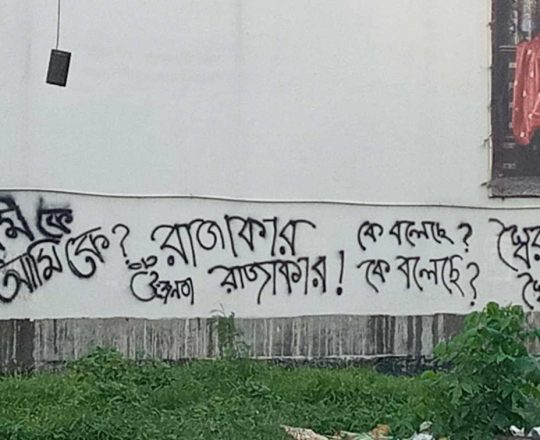 মি কে
আমি কে? রাজাকার কে বলেছে? স্বৈর
রাজাকার! কে বলেছে?